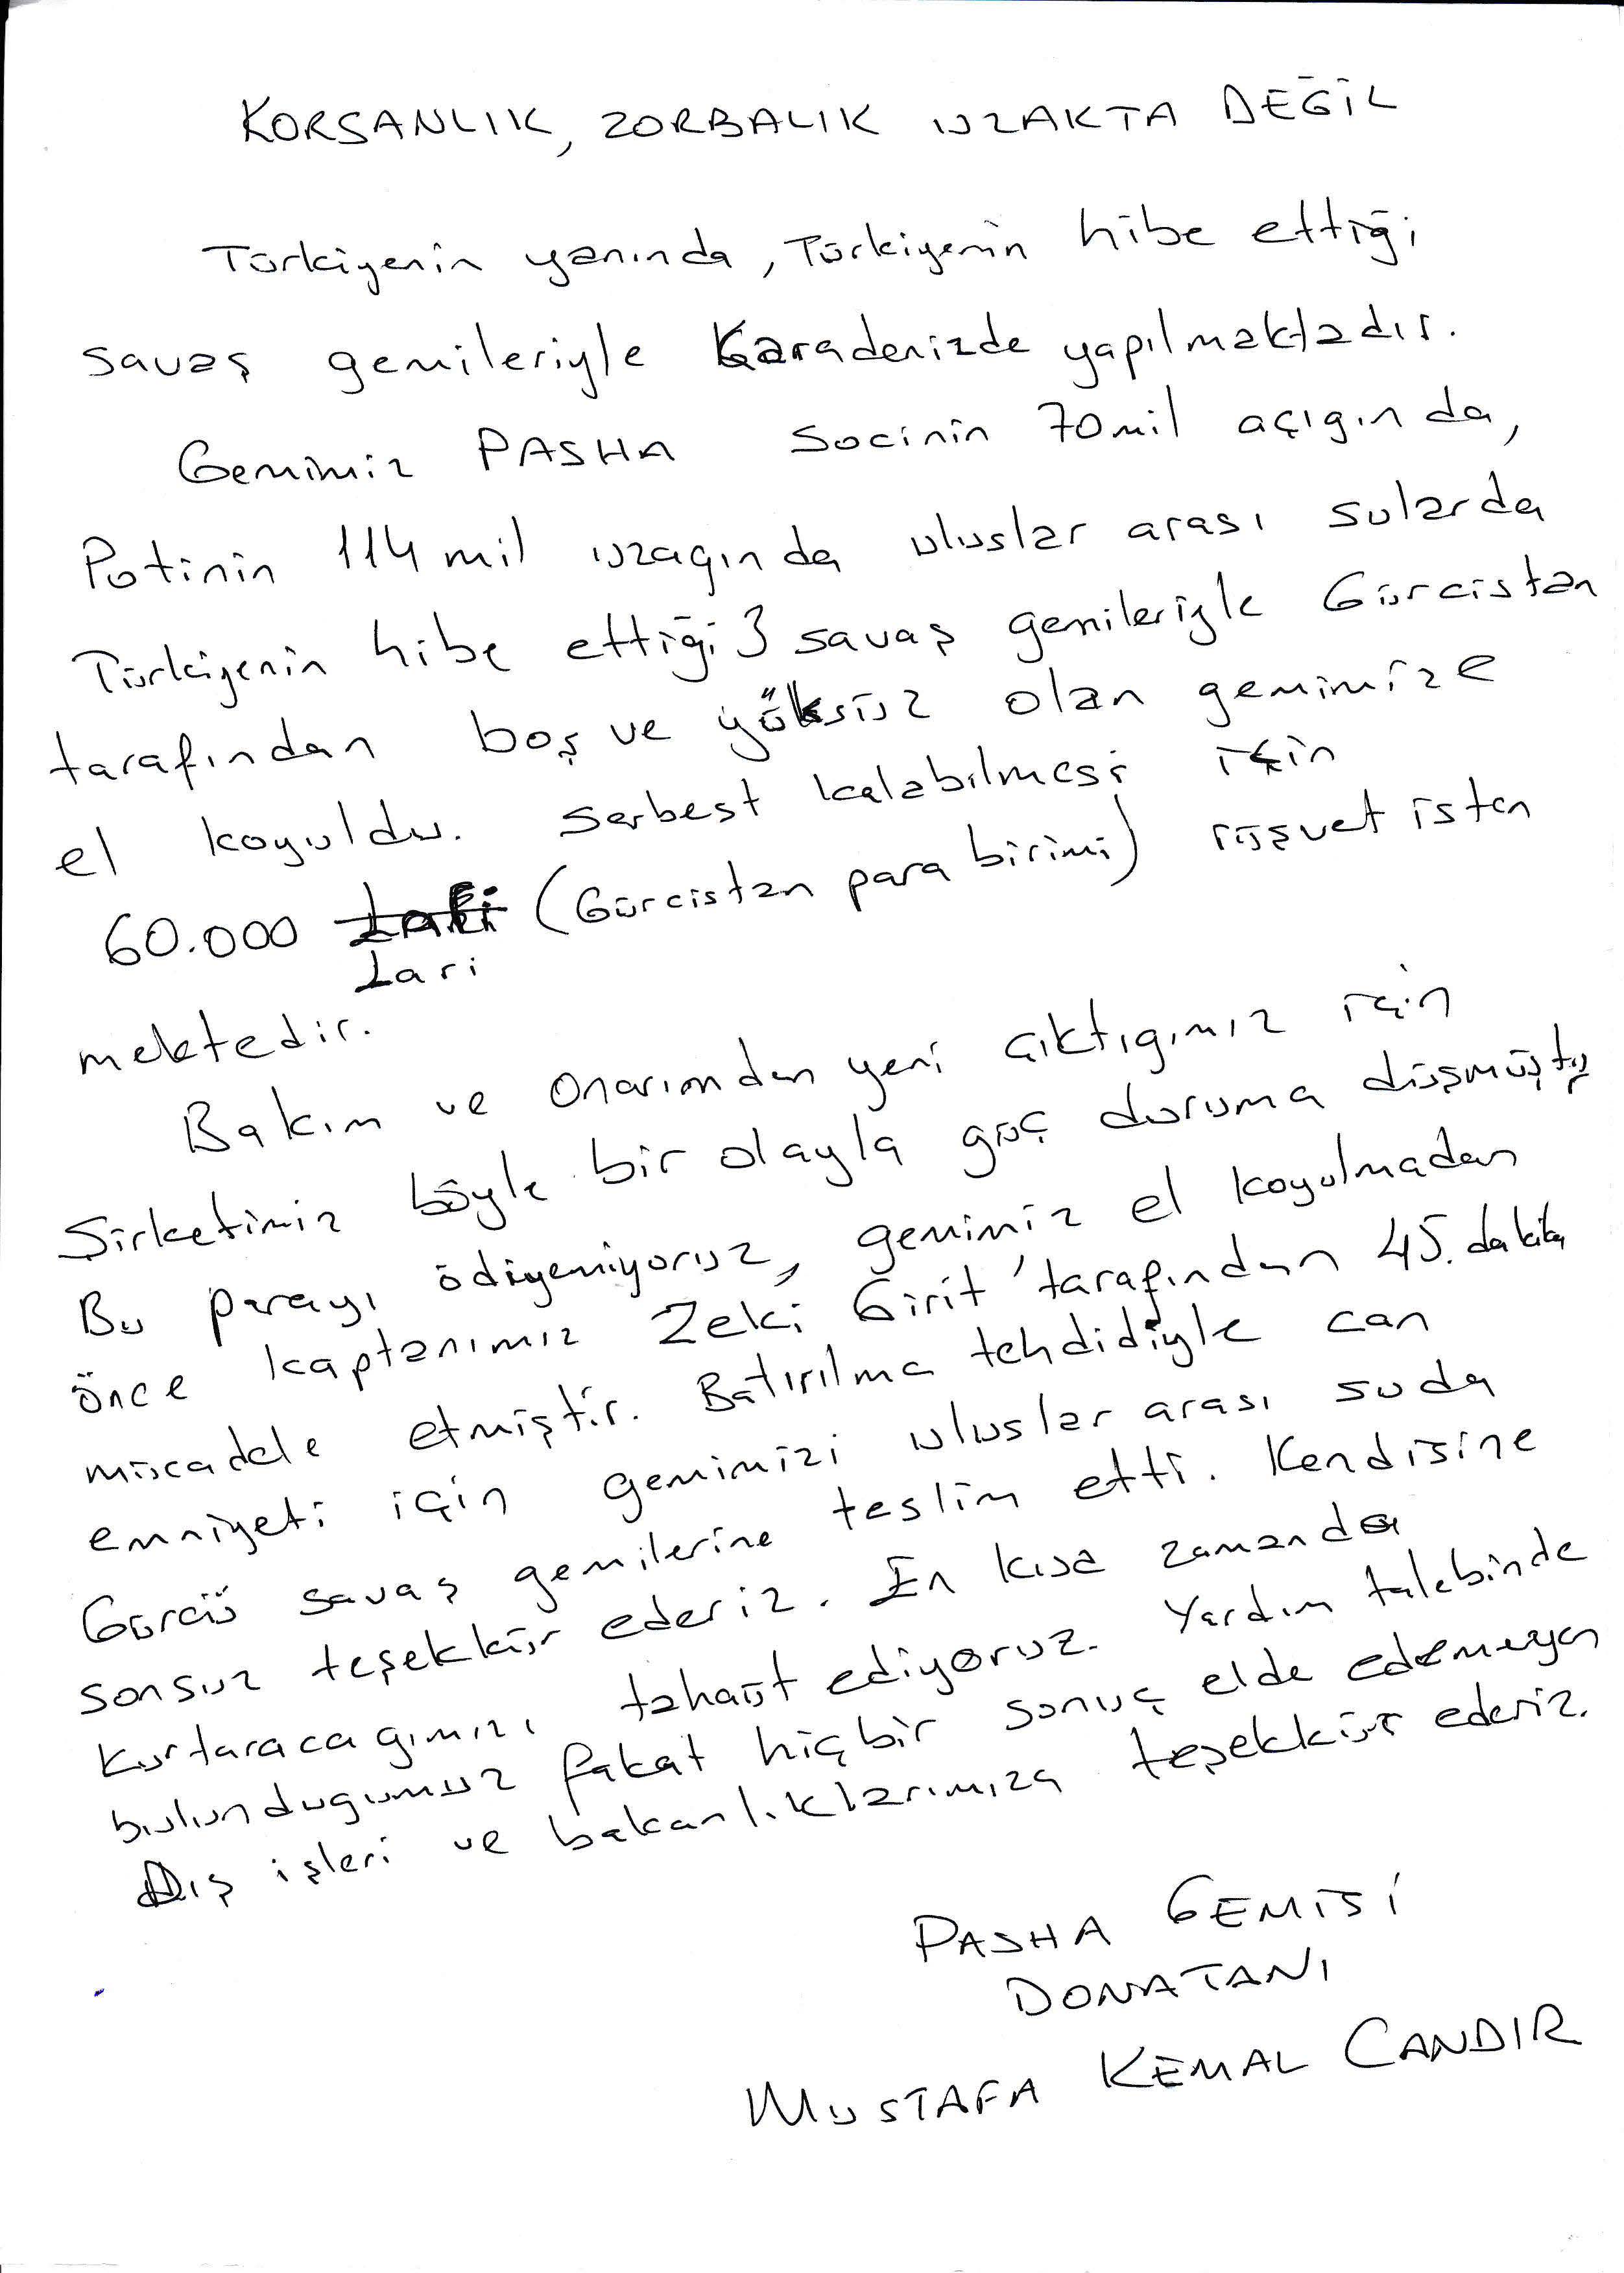 KORSANLIK, ZORBALIK UZAKTA DEĞİL
Türkiyenin yanında, Türkiyenin hibe ettiği
savaş gemileriyle Karadenizde yapılmaktadır.
Gemimiz PASHA Socinin 70 mil açıgında,
Potinin 114 mil uzagında uluslar arası sularda
Türkiyenin hibe ettiği 3 savaş gemileriyle Gürcistan
tarafından boş ve yüksüz olan gemimize
el koyuldu. Serbest kalabilmesi için
60.000 Lari (Gürcistan para birimi) rüşvet isten
Lari
mektedir.
Bakım ve onarımdan yeni çıktıgımız için
Şirketimiz böyle bir olayla güç duruma düşmüştü
Bu parayı ödiyemiyoruz, gemimiz el koyulmadan
önce kaptanımız Zeki Girit' tarafından 45. dakika
mücadele etmiştir. Batırılma tehdidiyle can
emniyeti için gemimizi uluslar arası suda
Gürcü savaş gemilerine teslim etti. Kendisine
sonsuz teşekkür ederiz. En kısa zamanda
kurtaracagımızı tahaüt ediyoruz. Yardım talebinde
bulundugumuz fakat hiçbir sonuç elde edemeyen
Dış işleri ve bakanlıklarımıza teşekkür ederiz.
PASHA GEMİSİ
DONATANI
MUSTAFA KEMAL CANDIR